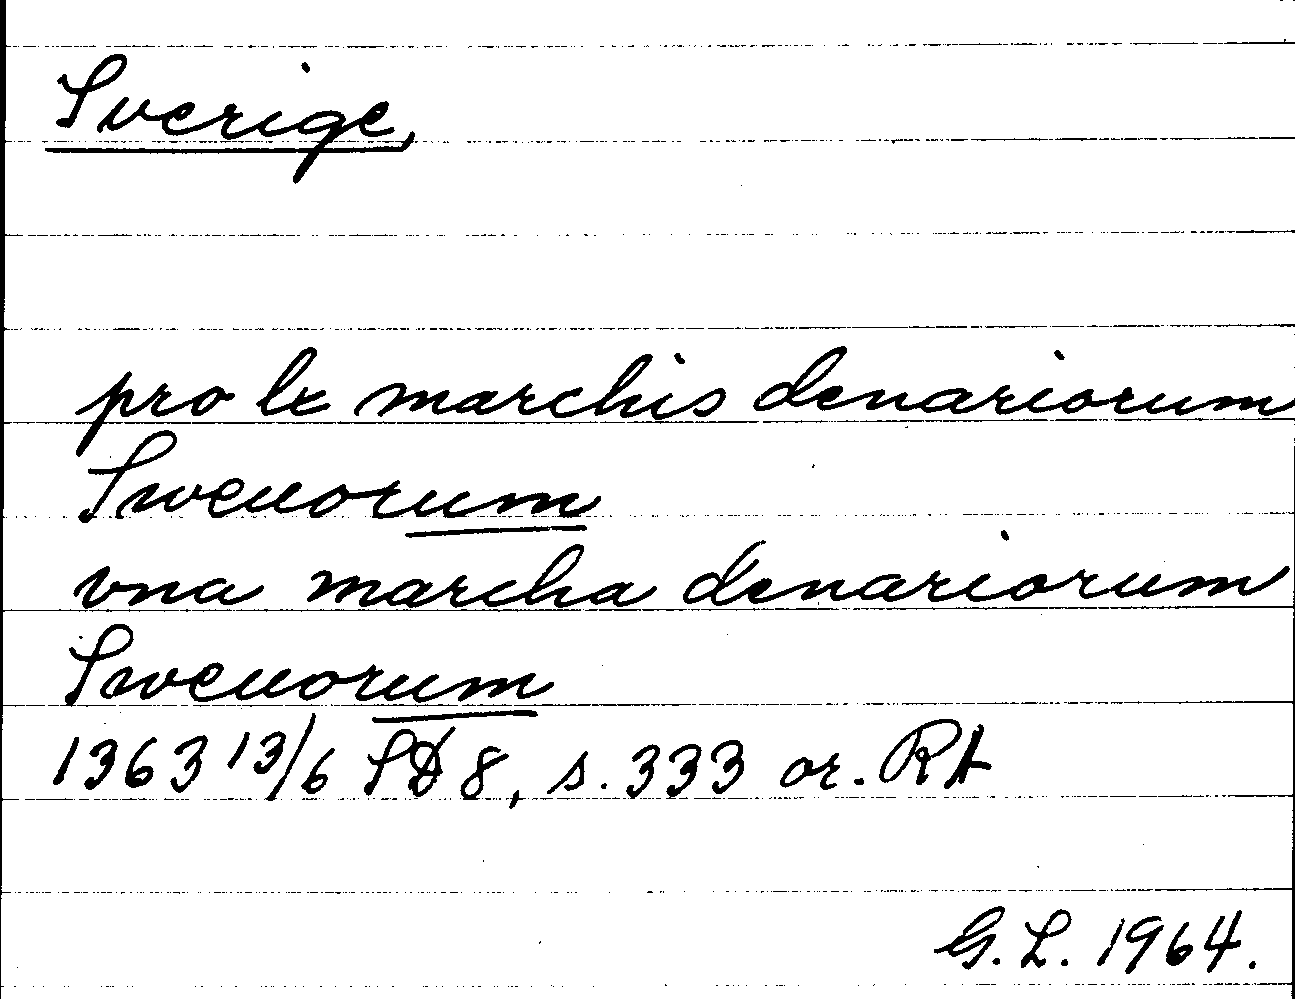 Sverige,
pro lx marchis denariorum
Swenorum
vna marcha denariorum
Swenorum
1363 13/6 SD 8, s. 333 or. RA
G. L. 1964.